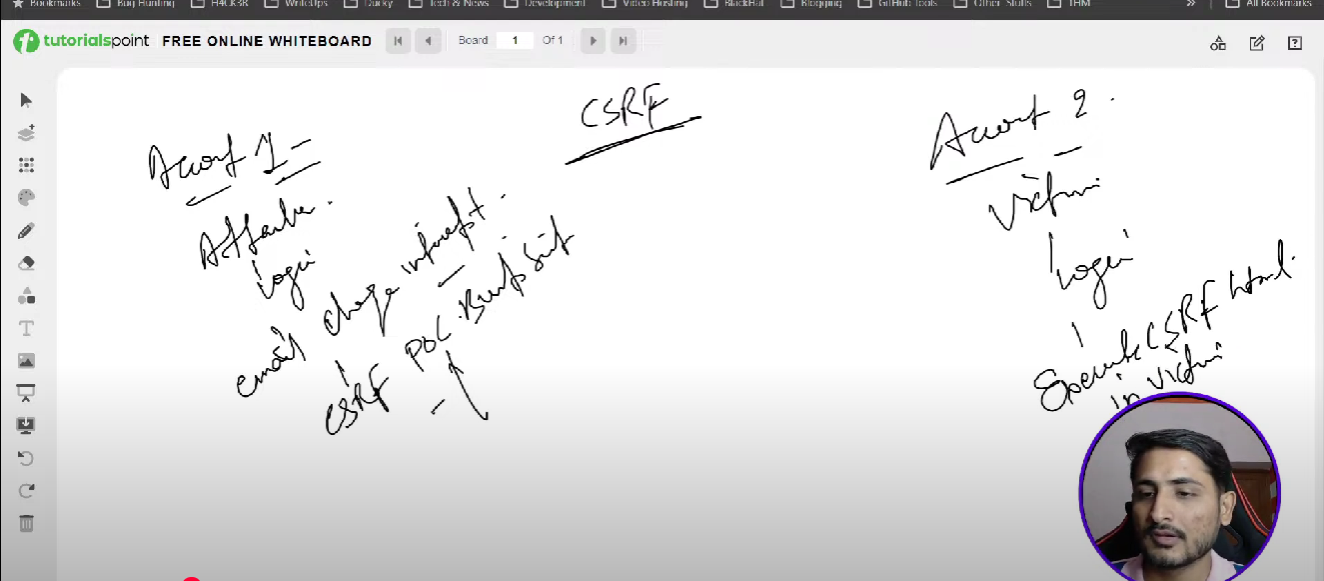 Bookmarks Bug Hunting H4CK3R WriteUps Ducky Tech & News Development Video Hosting BlackHat Blogging GitHub Tools Other Stuffs THM » All Bookmarks
tutorialspoint FREE ONLINE WHITEBOARD Board 1 Of 1
CSRF
Account 1
Attacker
Login
email change intercept
CSRF POC Burp Suit
Account 2
Victim
Login
Execute CSRF html
in Victim